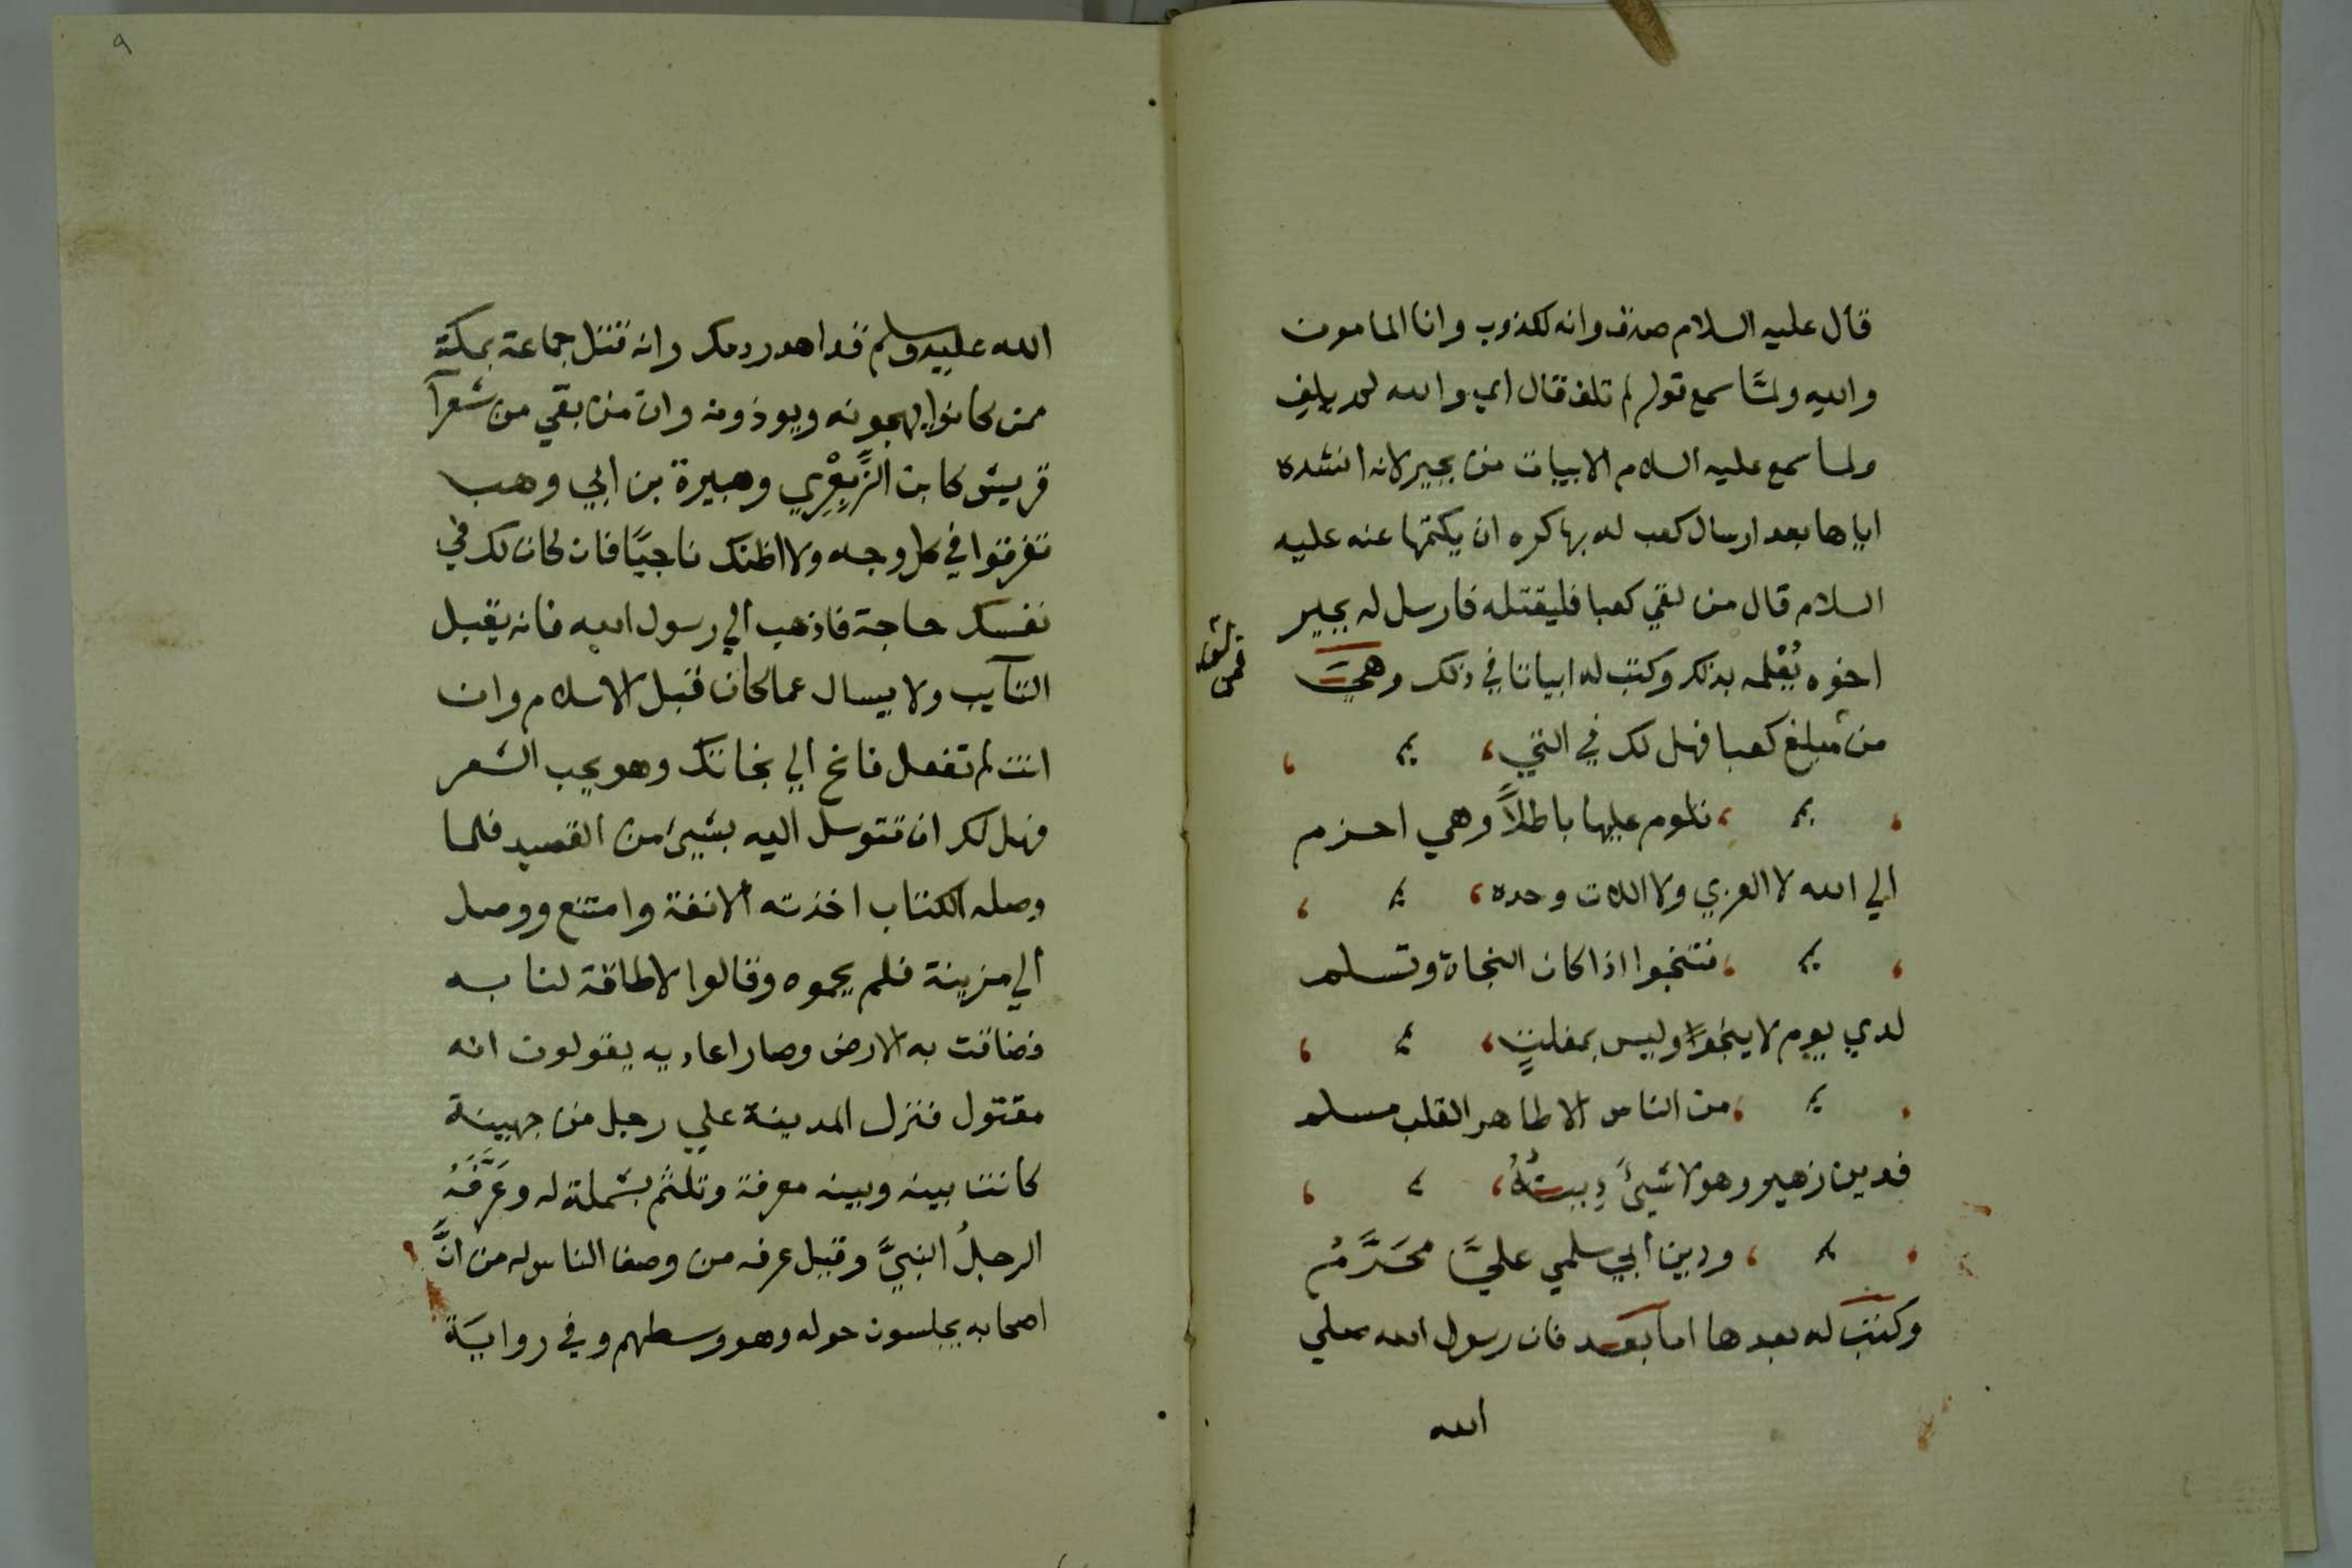 قال عليه السلام صدق وانه لكذوب وانا المامون
والله ولمّا سمع قوله لم تلف قال اي والله لم يلف
ولما سمع عليه السلام الابيات من بجير لانه انشده
اياها بعد ارسال كعب له بها كره ان يكتمها عنه عليه
السلام قال من لقي كعبا فليقتله فارسل له بجير
اخوه يُعْلمه بذلك وكتب له ابياتا في ذلك وهي
من مبلغ كعبا فهل لك في التي،
، تلوم عليها باطلاً وهي احزم
الي الله لا العزي ولا اللات وحده،
، فتنجوا اذا كان النجاة وتسلم
لدي يوم لا ينجوا وليس بمفلتٍ،
، من الناس الا طاهر القلب مسلم
فدين زهير وهو لا شيئَ دِينُهُ،
، ودين ابي سلمي عليَّ محَرَّمُ
وكتب له بعدها اما بعد فان رسول الله صلي
الله
٩
الله عليه وسلم قد اهدر دمك وانه قتل جماعة بمكة
ممن كانوا يهجونه ويوذونه وان من بقي من شعرآ
قريش كابن الزِّبِعْرِي وهبيرة بن ابي وهب
تفرقوا في كل وجه ولا اظنك ناجيًا فان كان لك في
نفسك حاجة فاذهب الي رسول الله فانه يقبل
التآيب ولا يسال عما كان قبل الاسلام وان
انت لم تفعل فانج الي نجاتك وهو يحب الشعر
فهل لك ان تتوسل اليه بشيئ من القصيد فلما
وصله الكتاب اخذته الانفة وامتنع ووصل
الي مزينة فلم يحموه وقالوا لا طاقة لنا به
فضاقت به الارض وصار اعاديه يقولون انه
مقتول فنزل المدينة علي رجل من جهينة
كانت بينه وبينه معرفة وتلثم بشملة له وعَرَّفَهُ
الرجلُ النبيَّ وقيل عرفه من وصف الناس له من انَّ
اصحابه يجلسون حوله وهو وسطهم وفي رواية